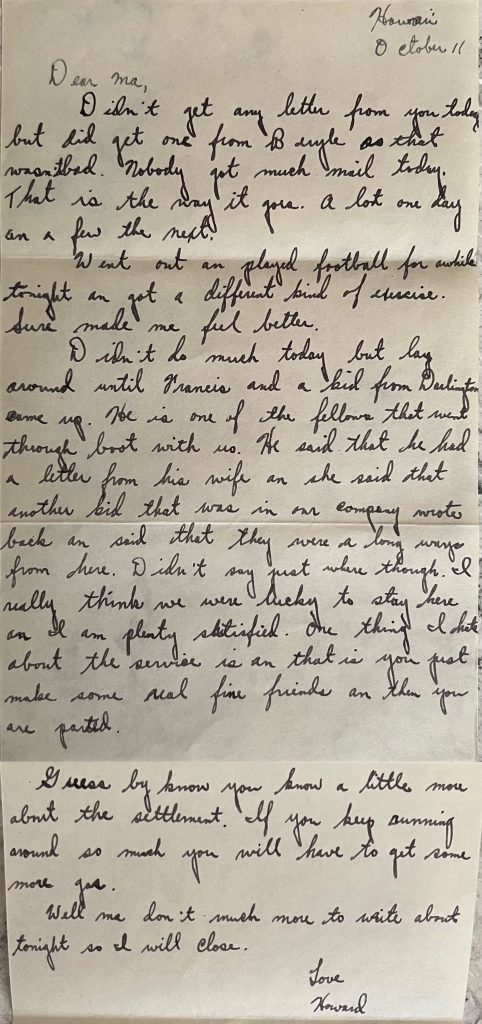 Hawaii
October 11
Dear ma,
Didn't get any letter from you today
but did get one from Beryle so that
wasn't bad. Nobody got much mail today.
That is the way it goes. A lot one day
an a few the next.
Went out an played football for awhile
tonight an got a different kind of exercise.
Sure made me feel better.
Didn't do much today but lay
around until Francis and a kid from Darlington
came up. He is one of the fellows that went
through boot with us. He said that he had
a letter from his wife an she said that
another kid that was in our company wrote
back an said that they were a long ways
from here. Didn't say just where though. I
really think we were lucky to stay here
an I am plenty satisfied. One thing I hate
about the service is an that is you just
make some real fine friends an then you
are parted.
Guess by know you know a little more
about the settlement. If you keep running
around so much you will have to get some
more gas.
Well ma don't much more to write about
tonight so I will close.
Love
Howard